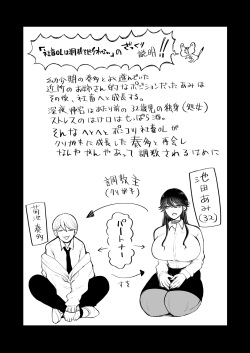 「社畜OLは調教で終われない」のざっくり
説明!!
幼少期の泰多とよく遊んでいた
近所のお姉さん的なポジションだったあみは
その後、社畜へと成長する。
深夜帰宅はあたり前の32歳児の独身(処女)
ストレスのはけ口はもっぱら酒。
そんなへとへとポッコリ社畜OLが
クソガキに成長した泰多と再会し
なんやかんやあって調教されるはめに
調教主
(クソガキ)
菊池 泰多
パートナー
池田 あみ
(32)